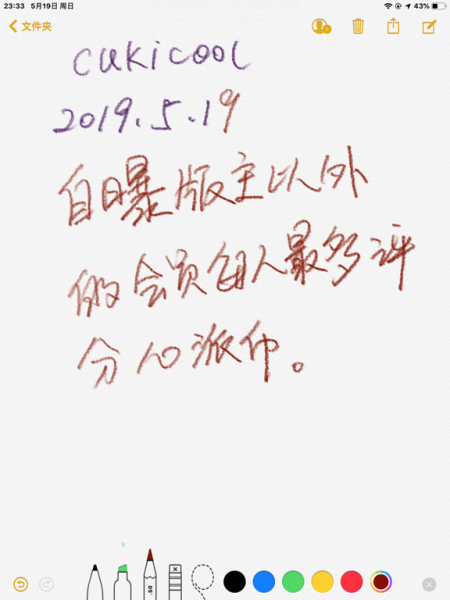 23:33 5月19日 周日 43%
文件夹
cukicool
2019.5.19
自曝版主以外
的会员每人最多评
分10派币。
.50